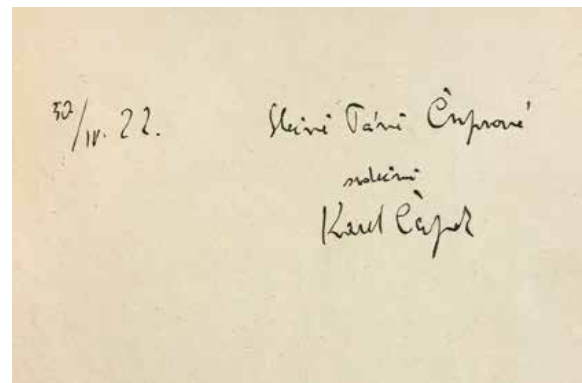 30/IV. 22.
Slečně Táně Čuprové
srdečně
Karel Čapek